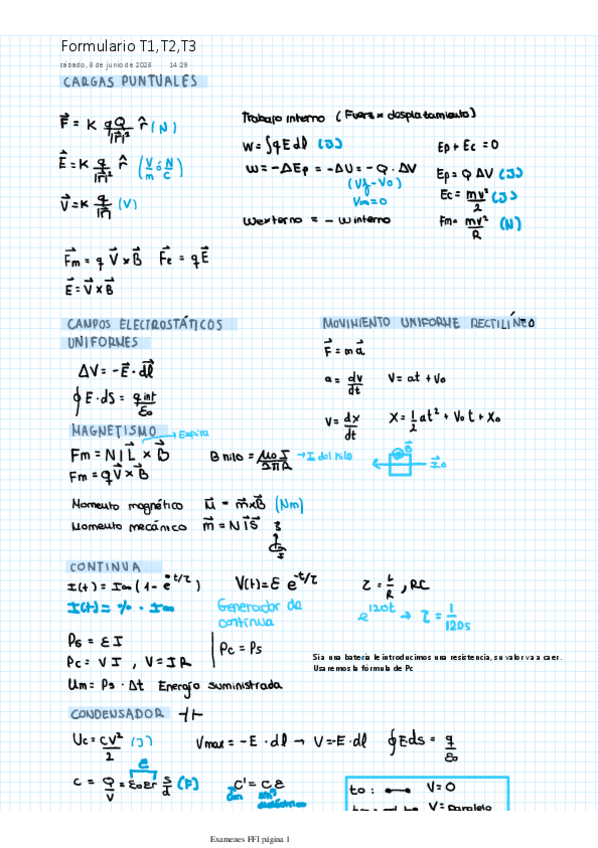 Formulario T1,T2,T3
sábado, 3 de junio de 2023 14:29
CARGAS PUNTUALES
F⃗ = K qQ/|r⃗|² r̂ (N)
E⃗ = K q/|r⃗|² r̂ (V/m ó N/C)
V⃗ = K q/|r⃗| (V)
Trabajo interno (Fuerza × desplazamiento)
W = ∫qEdl (J)
W = -ΔEp = -ΔU = -Q · ΔV
(Vf - V0)
V∞=0
Wexterno = - Winterno
Ep + Ec = 0
Ep = Q ΔV (J)
Ec = mv²/2 (J)
Fm = mv²/R (N)
F⃗m = q V⃗ × B⃗ F⃗e = q E⃗
E⃗ = V⃗ × B⃗
CAMPOS ELECTROSTÁTICOS
UNIFORMES
ΔV = -E⃗ · dl⃗
∮ E · ds = qint/ε0
MOVIMIENTO UNIFORME RECTILÍNEO
F⃗ = ma⃗
a = dv/dt V = at + V0
v = dx/dt X = 1/2 at² + V0t + X0
MAGNETISMO
→ Espira
Fm = N I L⃗ × B⃗
Fm = q V⃗ × B⃗
B hilo = μ0 I/2πR → I del hilo
B⃗
I0
Momento magnético M⃗ = m⃗×B⃗ (Nm)
Momento mecánico m⃗ = N I S⃗
I
CONTINUA
I(t) = I∞ (1 - e^-t/τ)
V(t) = ε e^-t/τ
τ = L/R , RC
I(t) = % · I∞
Generador de
continua
e^120t → τ = 1/120 s
PG = ε I
Pc = V I , V = I R
Pc = Ps
Um = Ps · Δt Energía suministrada
Si a una batería le introducimos una resistencia, su valor va a caer.
Usaremos la fórmula de Pc
CONDENSADOR ⊣⊢
Uc = CV²/2 (J)
Vmax = -E · dl → V = -E · dl
∮Eds = q/ε0
C = Q/V = ε0εr s/d (F)
e
C' = C ε
con
dieléctrico
t0 : V = 0
V = Paralelo
Examenes FFI página 1